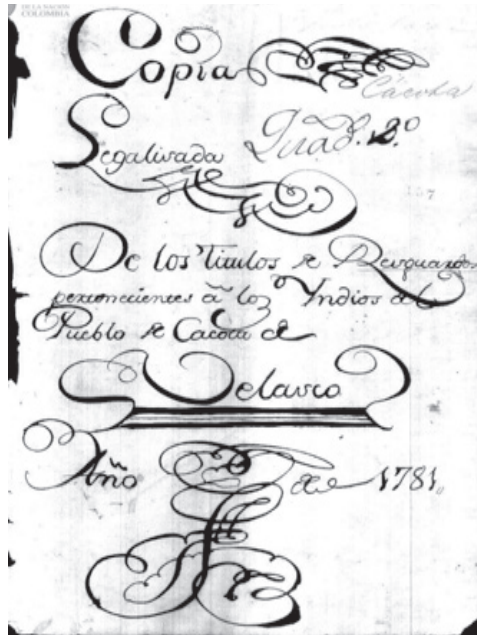 DE LA NACIÓN
COLOMBIA
Copia
Cácota
Quad. 2.º
Legalisada
De los Titulos de Resguardos
pertenecientes â los Yndios del
Pueblo de Cacota de
Velasco
Año de 1781